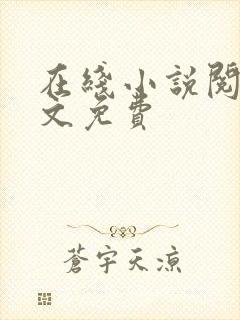 在綫小說閱
文免費
蒼宇天涼